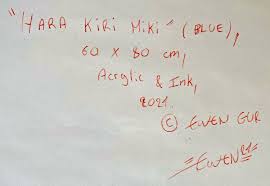 "HARA KiRi MiKi" (BLUE),
60 x 80 cm,
Acrylic & Ink,
2021.
© EWEN GUR
=EWEN21=